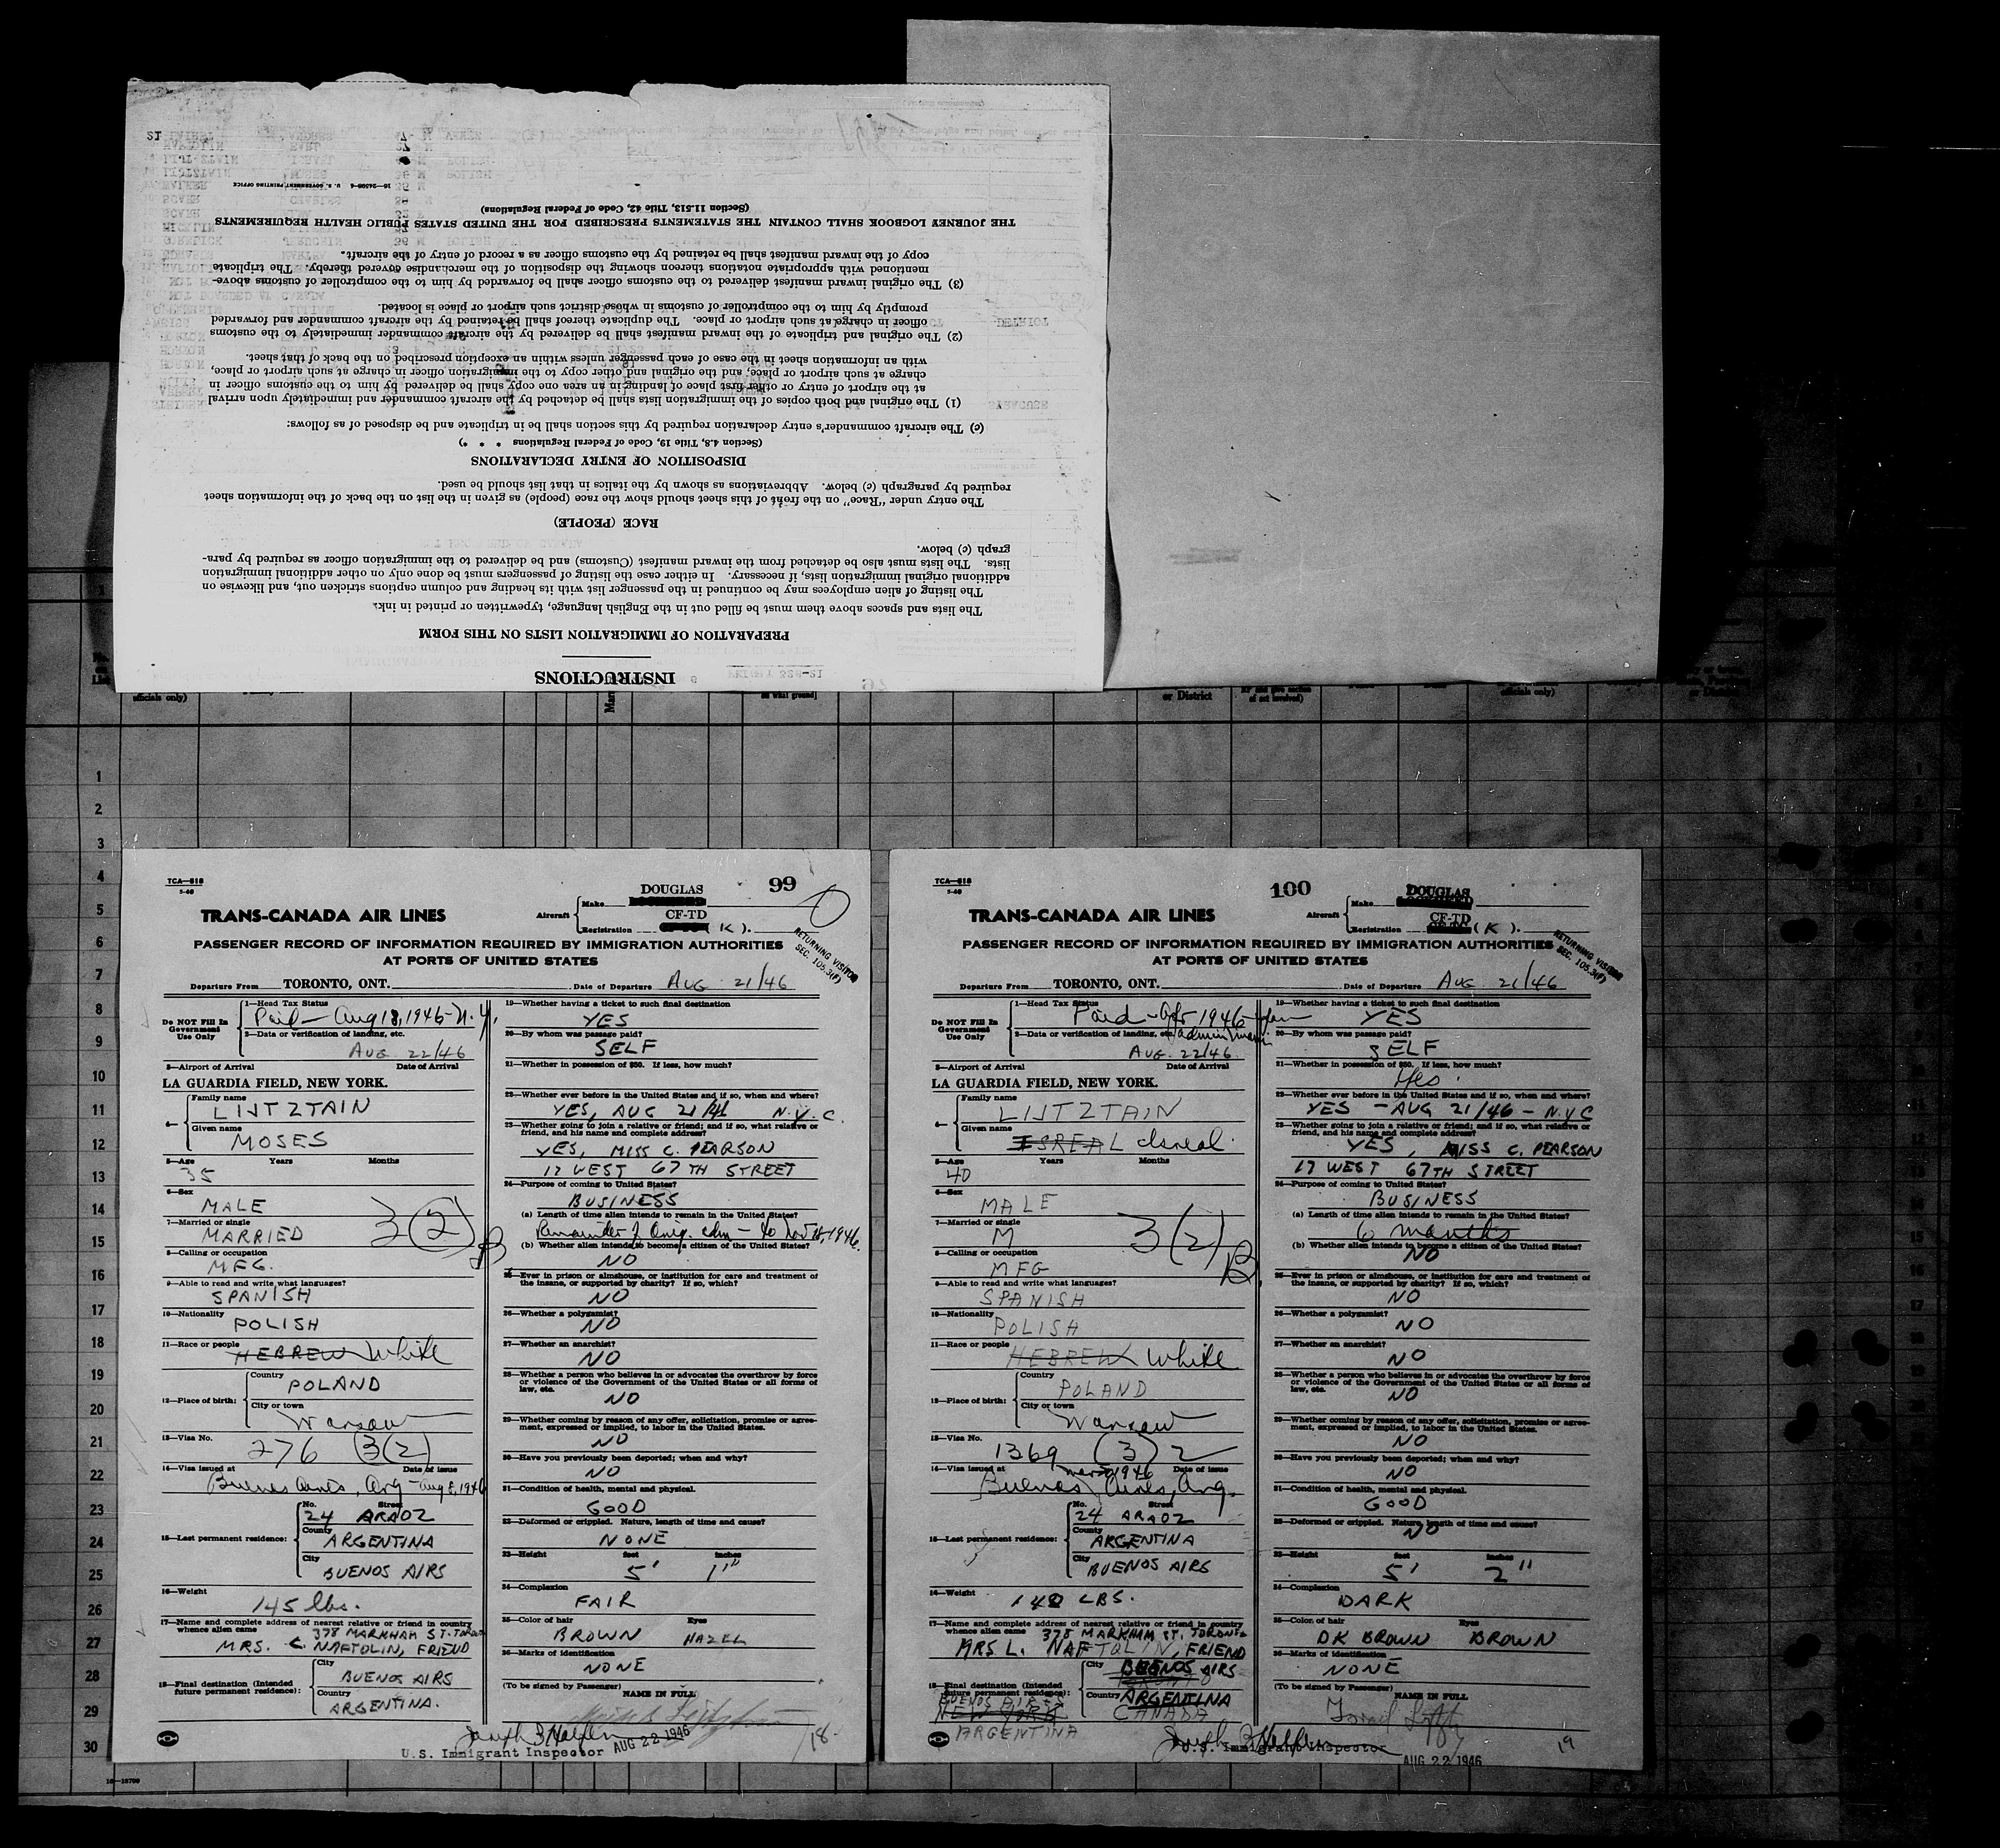 INSTRUCTIONS
PREPARATION OF IMMIGRATION LISTS ON THIS FORM
The lists and spaces above them must be filled out in the English language, typewritten or printed in ink.
The listing of alien employees may be continued in the passenger list with its heading and column captions stricken out, and likewise on
additional original immigration lists, if necessary. In either case the listing of passengers must be done only on other additional immigration
lists. The lists must also be detached from the inward manifest (Customs) and be delivered to the immigration officer as required by para-
graph (c) below.
RACE (PEOPLE)
The entry under "Race" on the front of this sheet should show the race (people) as given in the list on the back of the information sheet
required by paragraph (c) below. Abbreviations as shown by the italics in that list should be used.
DISPOSITION OF ENTRY DECLARATIONS
(Section 4.8, Title 19, Code of Federal Regulations * * *)
(c) The aircraft commander's entry declaration required by this section shall be in triplicate and be disposed of as follows:
(1) The original and both copies of the immigration lists shall be detached by the aircraft commander and immediately upon arrival
at the airport of entry or other first place of landing in an area one copy shall be delivered by him to the customs officer in
charge at such airport or place, and the original and other copy to the immigration officer in charge at such airport or place,
with an information sheet in the case of each passenger unless within an exception prescribed on the back of that sheet.
(2) The original and triplicate of the inward manifest shall be delivered by the aircraft commander immediately to the customs
officer in charge at such airport or place. The duplicate thereof shall be retained by the aircraft commander and forwarded
promptly by him to the comptroller of customs in whose district such airport or place is located.
(3) The original inward manifest delivered to the customs officer shall be forwarded by him to the comptroller of customs above-
mentioned with appropriate notations thereon showing the disposition of the merchandise covered thereby. The triplicate
copy of the inward manifest shall be retained by the customs officer as a record of entry of the aircraft.
THE JOURNEY LOGBOOK SHALL CONTAIN THE STATEMENTS PRESCRIBED FOR THE UNITED STATES PUBLIC HEALTH REQUIREMENTS
(Section 11.513, Title 42, Code of Federal Regulations)
U. S. GOVERNMENT PRINTING OFFICE
officials only)
or District
1
2
3
4
5
6
7
8
9
10
11
12
13
14
15
16
17
18
19
20
21
22
23
24
25
26
27
28
29
30
TCA—818
5-46
99
DOUGLAS
TRANS-CANADA AIR LINES
Aircraft
Make
CF-TD
Registration
(K).
PASSENGER RECORD OF INFORMATION REQUIRED BY IMMIGRATION AUTHORITIES
AT PORTS OF UNITED STATES
RETURNING VISITOR
SEC. 105.3(F)
Departure From TORONTO, ONT. Date of Departure AUG 21/46
Do NOT Fill In
Government
Use Only
1—Head Tax Status
Paid — Aug 18, 1946 - N.Y.
2—Data or verification of landing, etc.
AUG. 22/46
3—Airport of Arrival Date of Arrival
LA GUARDIA FIELD, NEW YORK.
4—
Family name
LIJTZTAIN
Given name
MOSES
5—Age Years Months
35
6—Sex
MALE
7—Married or single
MARRIED
3(2)
8—Calling or occupation
MFG.
9—Able to read and write what languages?
SPANISH
10—Nationality
POLISH
11—Race or people
HEBREW White
12—Place of birth:
Country
POLAND
City or town
Warsaw
13—Visa No.
276 (3(2)
14—Visa issued at Date of issue
Buenos Aires, Arg — Aug 8, 1946
15—Last permanent residence:
No. Street
24 ARAOZ
County
ARGENTINA
City
BUENOS AIRS
16—Weight
145 lbs.
17—Name and complete address of nearest relative or friend in country
whence alien came
378 MARKHAM ST. TORONTO
MRS. L. NAFTOLIN, FRIEND
18—Final destination (Intended
future permanent residence):
City
BUENOS AIRS
Country
ARGENTINA.
19—Whether having a ticket to such final destination
YES
20—By whom was passage paid?
SELF
21—Whether in possession of $50. If less, how much?
22—Whether ever before in the United States and if so, when and where?
YES, AUG 21/46 N.Y.C.
23—Whether going to join a relative or friend; and if so, what relative or
friend, and his name and complete address?
YES, MISS C. PEARSON
17 WEST 67TH STREET
24—Purpose of coming to United States?
BUSINESS
(a) Length of time alien intends to remain in the United States?
Remainder of Orig. adm — to Nov 18, 1946.
(b) Whether alien intends to become a citizen of the United States?
NO
25—Ever in prison or almshouse, or institution for care and treatment of
the insane, or supported by charity? If so, which?
NO
26—Whether a polygamist?
NO
27—Whether an anarchist?
NO
28—Whether a person who believes in or advocates the overthrow by force
or violence of the Government of the United States or all forms of
law, etc.
NO
29—Whether coming by reason of any offer, solicitation, promise or agree-
ment, expressed or implied, to labor in the United States.
NO
30—Have you previously been deported; when and why?
NO
31—Condition of health, mental and physical.
GOOD
32—Deformed or crippled. Nature, length of time and cause?
NONE
33—Height feet inches
5' 1"
34—Complexion
FAIR
35—Color of hair Eyes
BROWN HAZEL
36—Marks of identification
NONE
(To be signed by Passenger)
NAME IN FULL
U.S. Immigrant Inspector AUG 22 1946
18.
16—18790
TCA—818
5-46
100
DOUGLAS
TRANS-CANADA AIR LINES
Aircraft
Make
CF-TD
Registration
(K).
PASSENGER RECORD OF INFORMATION REQUIRED BY IMMIGRATION AUTHORITIES
AT PORTS OF UNITED STATES
RETURNING VISITOR
SEC. 105.3(F)
Departure From TORONTO, ONT. Date of Departure AUG 21/46
Do NOT Fill In
Government
Use Only
1—Head Tax Status
Paid — Apr 1946
2—Data or verification of landing, etc.
AUG. 22/46.
3—Airport of Arrival Date of Arrival
LA GUARDIA FIELD, NEW YORK.
4—
Family name
LIJTZTAIN
Given name
ISREAL Israel.
5—Age Years Months
40
6—Sex
MALE
7—Married or single
M
3(2)
8—Calling or occupation
MFG
9—Able to read and write what languages?
SPANISH
10—Nationality
POLISH
11—Race or people
HEBREW White
12—Place of birth:
Country
POLAND
City or town
Warsaw
13—Visa No.
1369 (3) 2
14—Visa issued at Date of issue
1946
Buenos Aires, Arg.
15—Last permanent residence:
No. Street
24 ARAOZ
County
ARGENTINA
City
BUENOS AIRS
16—Weight
140 LBS.
17—Name and complete address of nearest relative or friend in country
whence alien came
378 MARKHAM ST. TORONTO
MRS L. NAFTOLIN, FRIEND
18—Final destination (Intended
future permanent residence):
City
BUENOS AIRS
TORONTO
Country
ARGENTINA
CANADA
BUENOS AIRES
NEW YORK
ARGENTINA
19—Whether having a ticket to such final destination
YES
20—By whom was passage paid?
SELF
21—Whether in possession of $50. If less, how much?
Yes.
22—Whether ever before in the United States and if so, when and where?
YES — AUG 21/46 — N.Y.C
23—Whether going to join a relative or friend; and if so, what relative or
friend, and his name and complete address?
YES, MISS C. PEARSON
17 WEST 67TH STREET
24—Purpose of coming to United States?
BUSINESS
(a) Length of time alien intends to remain in the United States?
6 months
(b) Whether alien intends to become a citizen of the United States?
NO
25—Ever in prison or almshouse, or institution for care and treatment of
the insane, or supported by charity? If so, which?
NO
26—Whether a polygamist?
NO
27—Whether an anarchist?
NO
28—Whether a person who believes in or advocates the overthrow by force
or violence of the Government of the United States or all forms of
law, etc.
NO
29—Whether coming by reason of any offer, solicitation, promise or agree-
ment, expressed or implied, to labor in the United States.
NO
30—Have you previously been deported; when and why?
NO
31—Condition of health, mental and physical.
GOOD
32—Deformed or crippled. Nature, length of time and cause?
NO
33—Height feet inches
5' 2"
34—Complexion
DARK
35—Color of hair Eyes
DK BROWN BROWN
36—Marks of identification
NONE
(To be signed by Passenger)
NAME IN FULL
U.S. Immigrant Inspector
AUG 22 1946
19